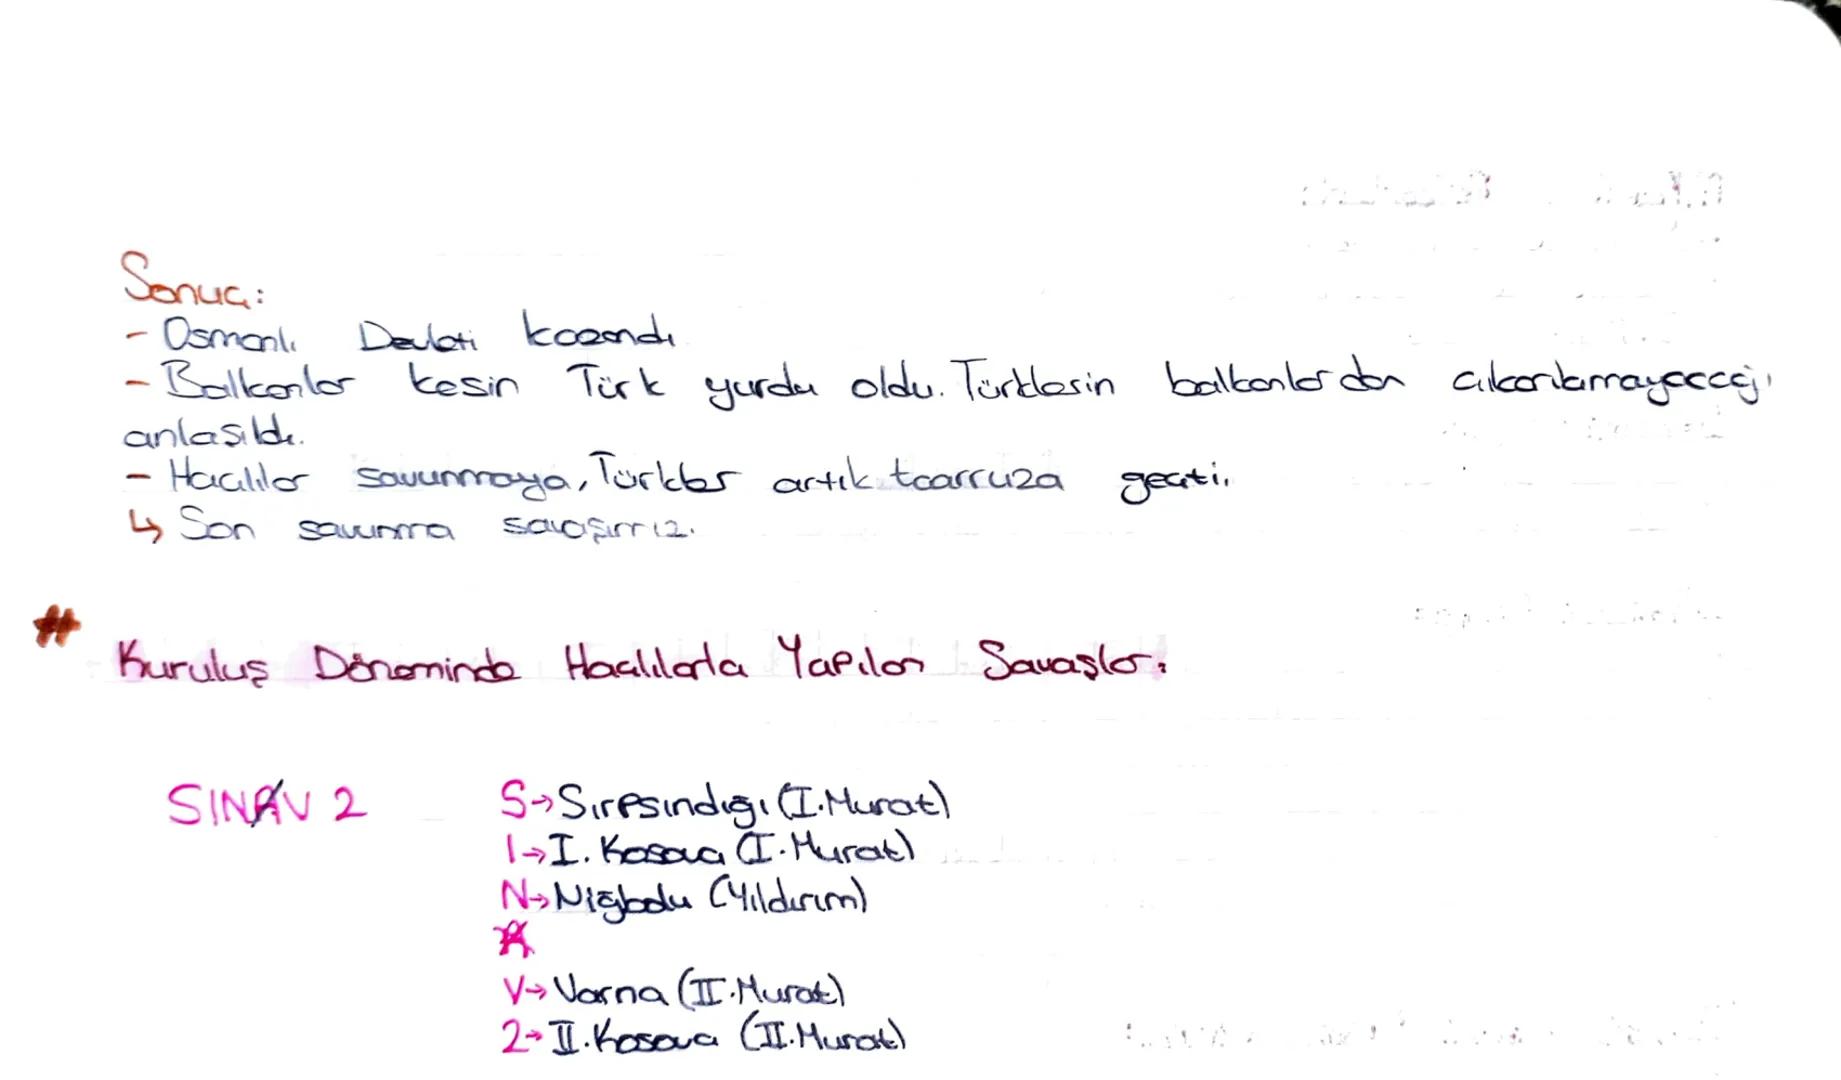 Sonuç:
- Osmanlı Devleti kazandı
- Balkanlar kesin Türk yurdu oldu. Türklerin balkanlardan çıkarılamayacağı
anlaşıldı.
- Haçlılar savunmaya, Türkler artık taarruza geçti.
↳ Son savunma savaşımız.
# Kuruluş Döneminde Haçlılarla Yapılan Savaşlar:
SINAV 2
S→Sırpsındığı (I.Murat)
I→I. Kosova (I.Murat)
N→Niğbolu (Yıldırım)
A
V→Varna (II.Murat)
2→II.Kosova (II.Murat)